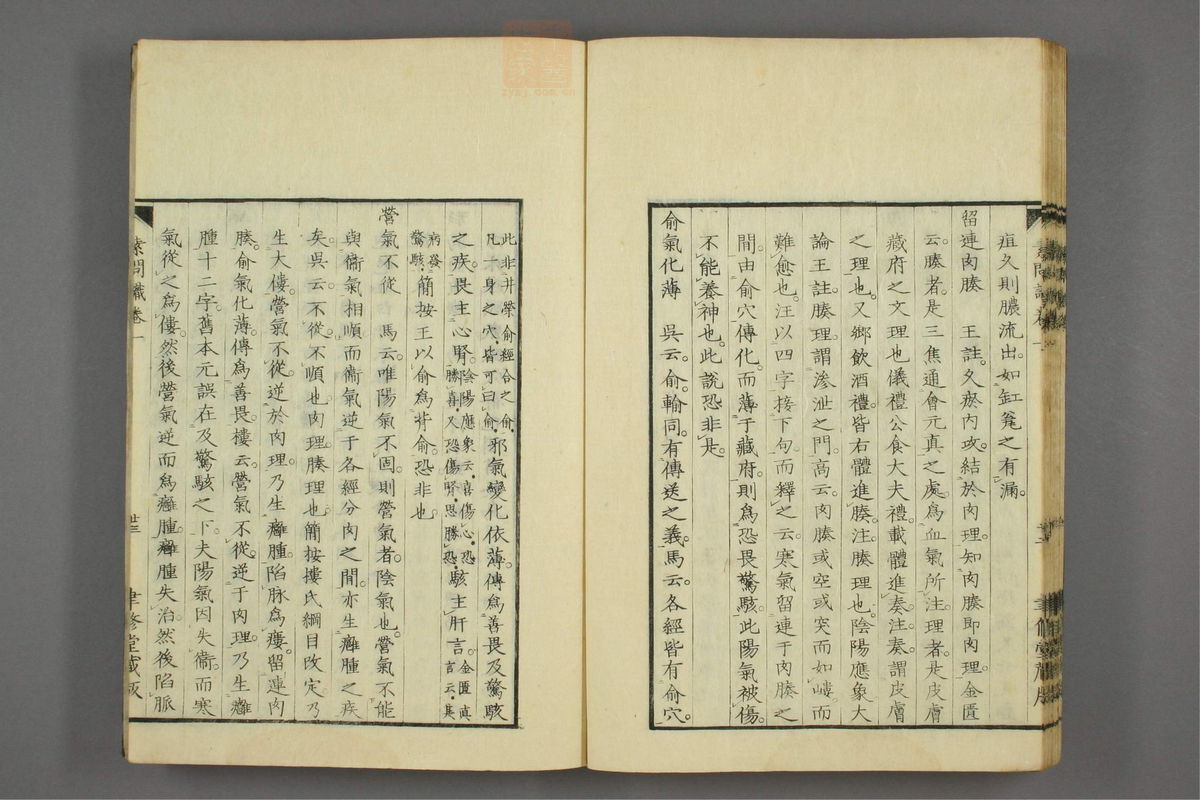 疽久則膿流出如缸甕之有漏
留連肉腠　王註久瘀內攻結於肉理知肉腠即肉理金匱
云腠者是三焦通會元真之處爲血氣所注理者是皮膚
藏府之文理也儀禮公食大夫禮載體進奏注奏謂皮膚
之理也又鄉飲酒禮皆右體進腠注腠理也陰陽應象大
論王註腠理謂滲泄之門高云肉腠或空或突而如嶁而
難愈也汪以四字接下句而釋之云寒氣留連于肉腠之
間由俞穴傳化而薄于藏府則爲恐畏驚駭此陽氣被傷
不能養神也此說恐非是
俞氣化薄　吳云俞輸同有傳送之義馬云各經皆有俞穴
此非井滎俞經合之俞
凡一身之穴皆可曰俞
邪氣變化依薄傳爲善畏及驚駭
之疾畏主心腎
陰陽應象云喜傷心恐
勝喜又恐傷腎思勝恐
駭主肝言
金匱真
言云其
病發
驚駭
簡按王以俞爲背俞恐非也
營氣不從　馬云唯陽氣不固則營氣者陰氣也營氣不能
與衞氣相順而衞氣逆于各經分肉之間亦生癰腫之疾
矣吳云不從不順也肉理腠理也簡按摟氏綱目改定乃
生大僂營氣不從逆於肉理乃生癰腫陷脉爲瘻留連肉
腠俞氣化薄傳爲善畏樓云營氣不從逆于肉理乃生癰
腫十二字舊本元誤在及驚駭之下夫陽氣因失衞而寒
氣從之爲僂然後營氣逆而爲癰腫癰腫失治然後陷脈
素問識卷一
廿三
聿修堂藏版